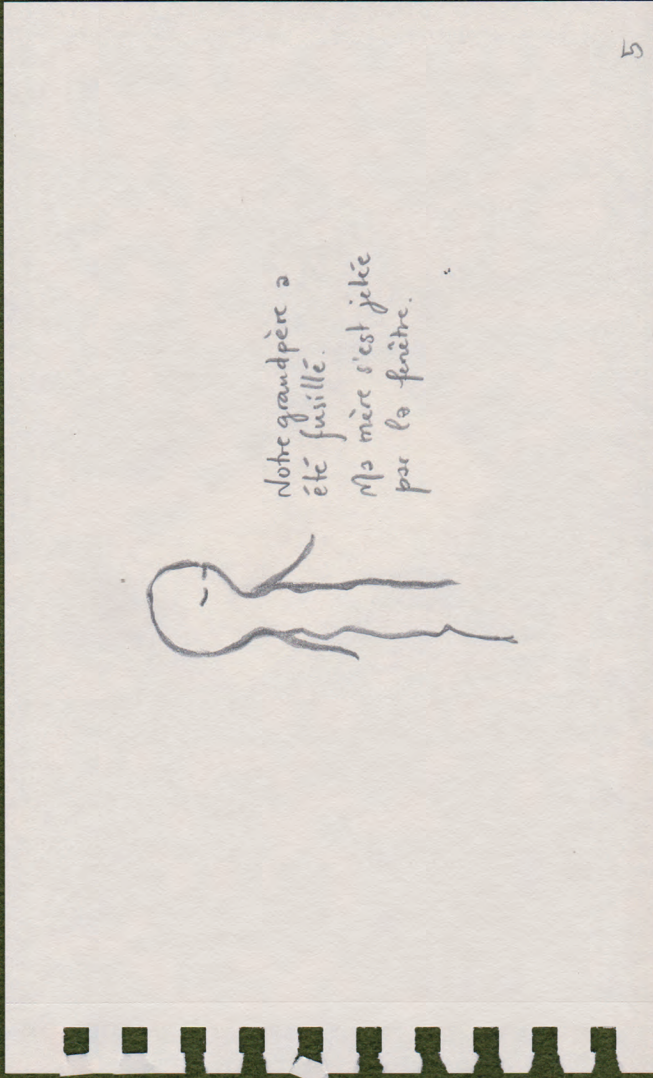 5
Notre grandpère a
été fusillé.
Ma mère s'est jetée
par la fenêtre.